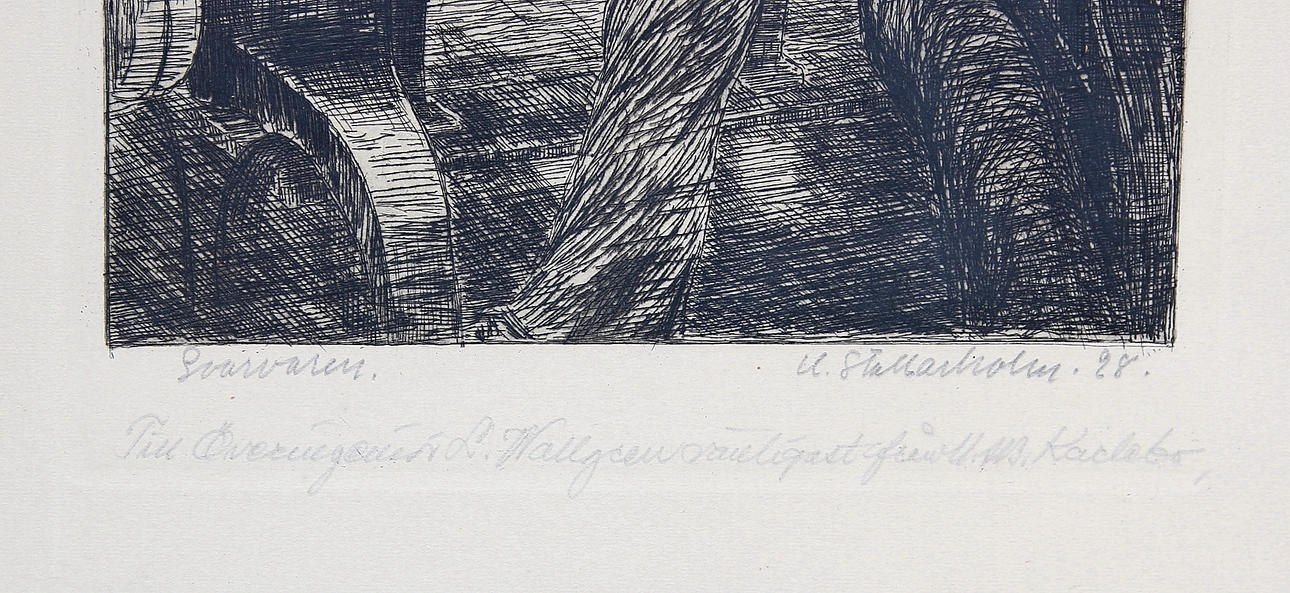 Svarvaren. U. Stallarholm. 28.
Till Överingenjör L. Wallgren vänligast från